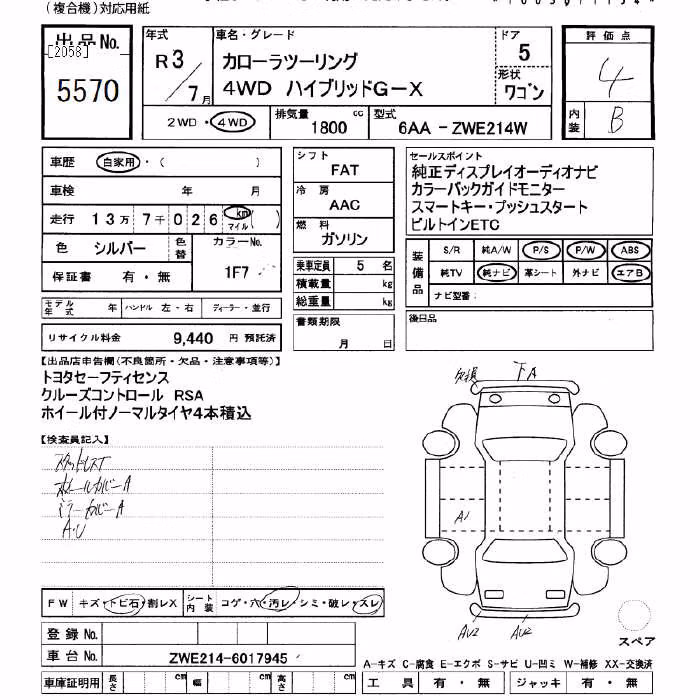 (複合機)対応用紙
出品No.
[2058]
5570
年式
R3
7月
車名・グレード
カローラツーリング
4WD ハイブリッドG-X
ドア
5
形状
ワゴン
評価点
4
内装
B
2WD・4WD
排気量
1800
cc
型式
6AA-ZWE214W
車歴
自家用・( )
車検 年 月
走行 13万7千026 km マイル ( )
色 シルバー 色替 カラーNo.
1F7
保証書 有・無
モデル年式 年 ハンドル 左・右 ディーラー・並行
リサイクル料金 9,440 円 預託済
シフト
FAT
冷房
AAC
燃料
ガソリン
乗車定員 5 名
積載量 kg
総重量 kg
書類期限
月 日
セールスポイント
純正ディスプレイオーディオナビ
カラーバックガイドモニター
スマートキー・プッシュスタート
ビルトインETC
装備品
S/R 純A/W P/S P/W ABS
純TV 純ナビ 革シート 外ナビ エアB
ナビ型番:
後日品
【出品店申告欄(不良箇所・欠品・注意事項等)】
トヨタセーフティセンス
クルーズコントロール RSA
ホイール付ノーマルタイヤ4本積込
【検査員記入】
スタッドレスT
ホイールカバーA
ミラーカバーA
A・U
欠損
下A
A1
AU2
AU2
スペア
FW キズ・トビ石・割レX
シート内装 コゲ・穴・汚レ・シミ・破レ・スレ
登録No.
車台No. ZWE214-6017945
車庫証明用 長さ cm 幅 cm 高さ cm
A-キズ C-腐食 E-エクボ S-サビ U-凹ミ W-補修 XX-交換済
工具 有・無 ジャッキ 有・無